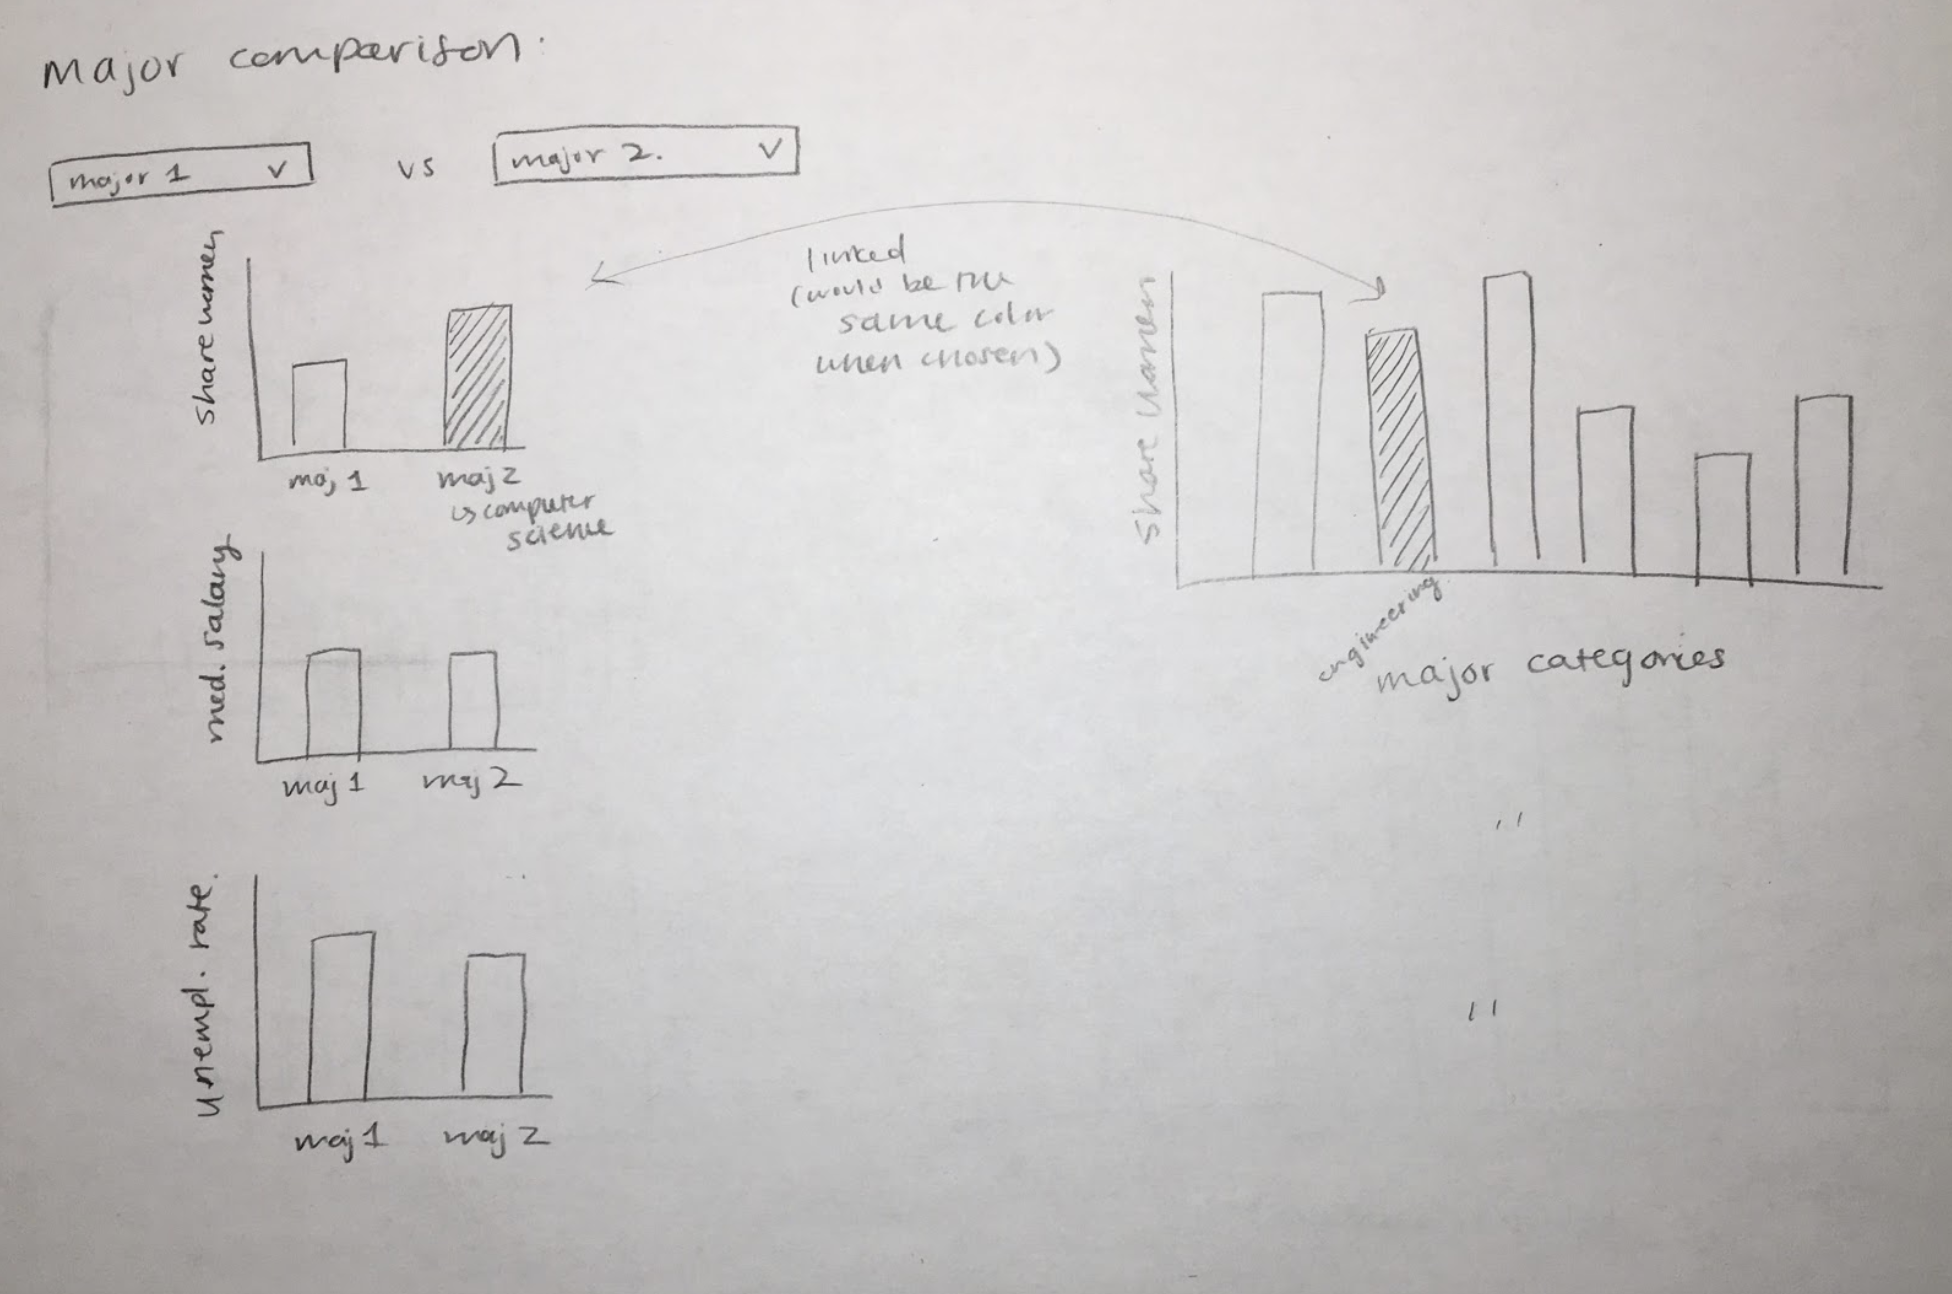 Major comparison:
major 1 v
vs
major 2. v
share women
maj 1
maj 2
↳ computer
science
linked
(would be the
same color
when chosen)
share women
engineering
major categories
med. salary
maj 1
maj 2
"
unempl. rate.
maj 1
maj 2
"